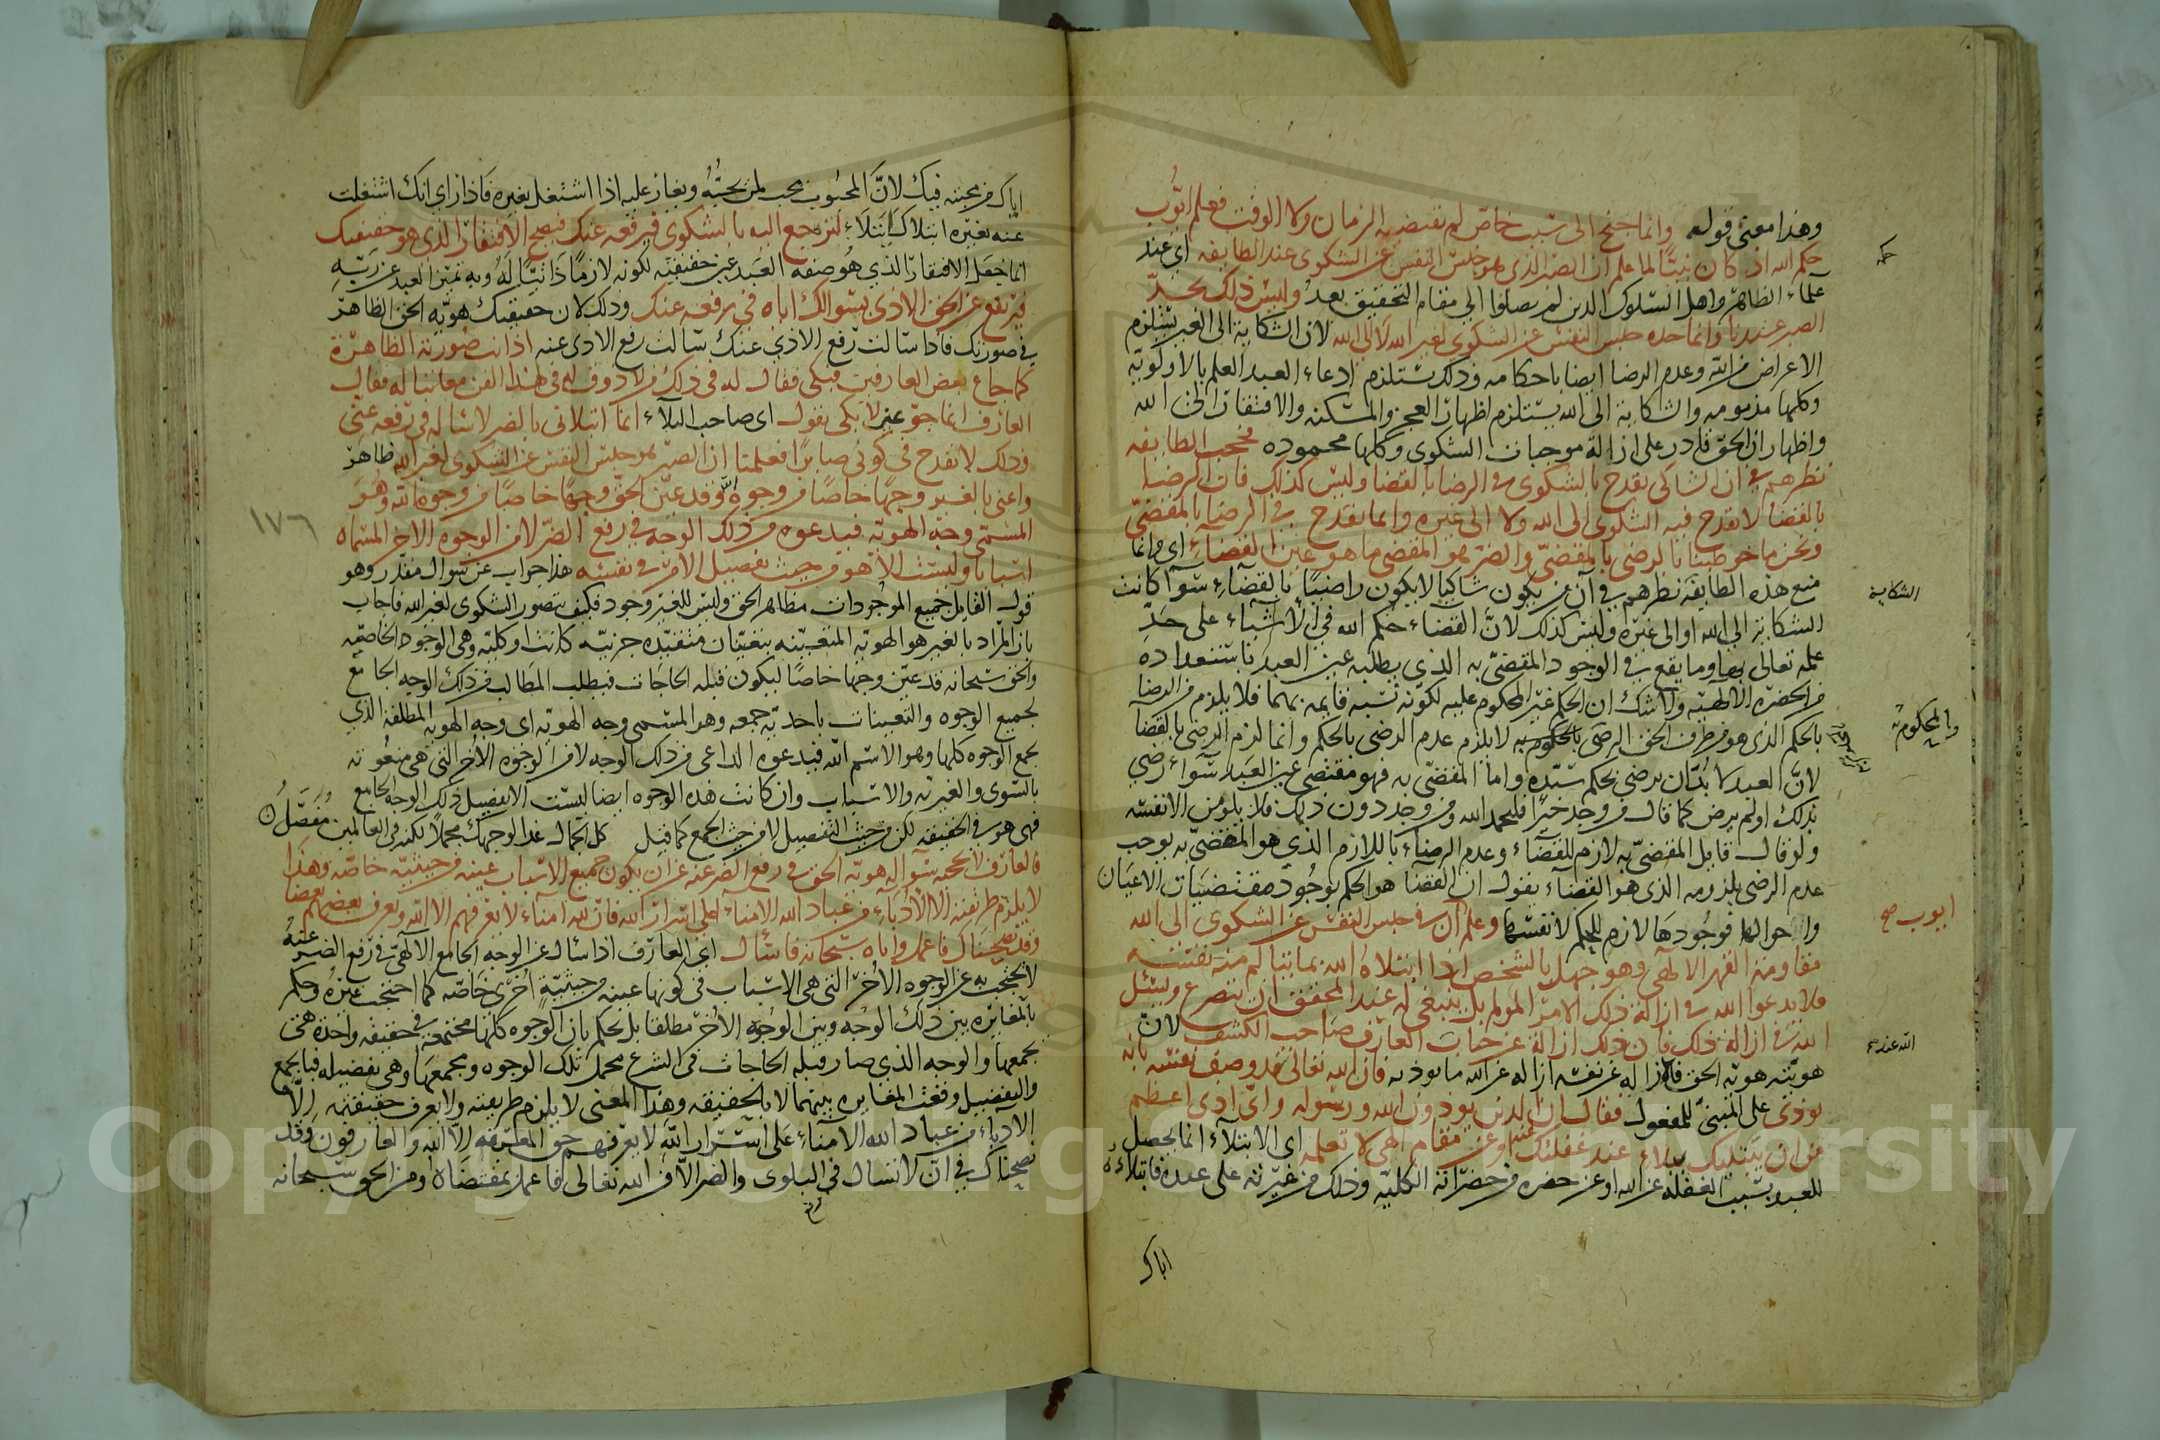 وهذا معنى قوله وانما جنح الى سبب خاص لم يقتضيه الزمان ولا الوقت فعلم ايوب
حكم الله اذ كان نبيا لما علم ان الصبر الذى هو حبس النفس عن الشكوى عند الطايفه اى عند
علماء الظاهر واهل السلوك الذين لم يصلوا الى مقام التحقيق بعد وليس ذلك بحد
الصبر عندنا وانما حده حبس النفس عن الشكوى لغير الله لا الى الله لان الشكاية الى الغير يستلزم
الاعراض من الله وعدم الرضا ايضا باحكامه وذلك يستلزم ادعاء العبد العلم بالاولوية
وكلها مذمومه والشكاية الى الله يستلزم اظهار العجز والمسكنه والافتقار الى الله
واظهار ان الحق قادر على ازالة موجبات الشكوى وكلها محموده فحجب الطايفه
نظرهم فى ان الشاكى يقدح بالشكوى فى الرضا بالقضا وليس كذلك فان الرضا
بالقضا لا تقدح فيه الشكوى الى الله ولا الى غيره وانما تقدح فى الرضا بالمقضى
ونحن ما خوطبنا بالرضى بالمقضى والضر هو المقضى ما هو عين القضاء اى وانما
منع هذه الطايفة نظرهم فى ان من يكون شاكيا لا يكون راضيا بالقضاء سوا كانت
الشكاية الى الله او الى غيره وليس كذلك لان القضاء حكم الله فى الاشياء على حد
علمه تعالى بها وما يقع فى الوجود المقضى به الذى يطلبه عين العبد باستعداده
من الحضره الالهيه ولا شك ان الحكم غير المحكوم عليه لكونه نسبه قايمه بهما فلا يلزم من الرضا
بالحكم الذى هو من طرف الحق الرضى بالمحكوم به لا يلزم عدم الرضى بالحكم وانما لزم الرضى بالقضا
لان العبد لا بد ان يرضى بحكم سيده واما المقضى به فهو مقتضى عين العبد سواء رضى
بذلك او لم يرض كما قال من وجد خيرا فليحمد الله ومن وجد دون ذلك فلا يلومن الا نفسه
ولو قال قايل المقضى به لازم للقضاء وعدم الرضاء باللازم الذى هو المقضى به يوجب
عدم الرضى بملزومه الذى هو القضاء يقول ان القضا هو الحكم بوجود مقتضيات الاعيان
واحوالها فوجودها لازم للحكم لا نفسها وعلم ان فى حبس النفس عن الشكوى الى الله
مقاومة القهر الالهى وهو جهل بالشخص اذا ابتلاه الله بما يتالم منه نفسه
فلا يدعو الله فى ازالة ذلك الامر المولم بل ينبغى له عند المحقق ان يتضرع ويسئل
الله فى ازالة ذلك فان ذلك ازالة عن جناب العارف صاحب الكشف لان
هويته هوية الحق فازاله عن نفسه ازاله عن الله ما يوذيه فان الله تعالى قد وصف نفسه بانه
يوذى على المبنى للمفعول فقال ان الذين يوذون الله ورسوله واى اذى اعظم
من ان يبتليك ببلاء عند غفلتك عنه او عن مقام الهى لا تعلمه اى الابتلاء انما يحصل
للعبد بسبب الغفلة عن الله او عن حضره من حضراته الكليه وذلك من غيرته على عبده فابتلاءه
اياك
حكمه
الشكاية
والمحكوم به
ايوب صح
الله عنده
اياك من محبته فيك لان المحبوب محب لمن يحبه ويغار عليه اذا اشتغل بغيره فاذا راى انك اشتغلت
عنه بغيره ابتلاك ابتلاء لترجع اليه بالشكوى فيرفعه عنك فيصح الافتقار الذى هو حقيقتك
انما جعل الافتقار الذى هو صفه العبد عين حقيقته لكونه لازما ذاتيا له وبه تميز العبد عن ربه
فيرتفع عن الحق الاذى بسوالك اياه فى رفعه عنك وذلك لان حقيقتك هويه الحق الظاهره
فى صورتك فاذا سالت رفع الاذى عنك سالت رفع الاذى عنه اذ انت صورته الظاهرة
كما جاع بعض العارفين فبكى فقال له فى ذلك من لا ذوق له فى هذا الفن معاتبا له فقال
العارف انما جوعنى لابكى يقول اى صاحب البلاء انما ابتلانى بالضر لاساله فى رفعه عنى
وذلك لا يقدح فى كونى صابرا فعلمنا ان الصبر هو حبس النفس عن الشكوى لغير الله ظاهر
واعنى بالغير وجها خاصا من وجوه الله وقد عين الحق وجها خاصا من وجوه الله وهو
المسمى وجه الهويه فيدعوه من ذلك الوجه فى رفع الضر لا من الوجوه الاخر المسماه
اسبابا وليست الا هو من حيث تفصيل الامر فى نفسه هذا جواب عن سوال مقدر وهو
قول القايل جميع الموجودات مظاهر الحق وليس للغير وجود فكيف يتصور الشكوى لغير الله فاجاب
بان المراد بالغير هو الهويه المتعينه بتعينات متقيده جزئيه كانت او كليه وهى الوجوه الخاصه
والحق سبحانه قد عين وجها خاصا ليكون قبله الحاجات فيطلب المطالب من ذلك الوجه الجامع
لجميع الوجوه والتعينات باحديه جمعه وهو المسمى وجه الهويه اى وجه الهويه المطلقه الذى
يجمع الوجوه كلها وهو الاسم الله فيدعوه الداعى من ذلك الوجه لا من الوجوه الاخر التى هى منعوته
بالسوى والغيريه والاسباب وان كانت هذه الوجوه ايضا ليست الا تفصيل ذلك الوجه الجامع
فهى هو فى الحقيقه لكن من حيث التفصيل لا من حيث الجمع كما قيل كل الجمال غدا لوجهك مجملا لكنه فى العالمين مفصل
فالعارف لا يحجبه سواله هوية الحق فى رفع الضر عنه عن ان يكون جميع الاسباب عينه من حيثيه خاصه وهذا
لا يلزم طريقته الا الادباء من عباد الله الامناء على اسرار الله فان لله امناء لا يعرفهم الا الله ويعرف بعضهم بعضا
وقد نصحناك فاعمل واياه سبحانه فاسال اى العارف اذا سال عن الوجه الجامع الالهى فى رفع الضر عنه
لا يحتجب به عن الوجوه الاخر التى هى الاسباب فى كونها عينه من حيثيه اخرى خاصه كما احتجب غيره وحكم
بالمغايره بين ذلك الوجه وبين الوجوه الاخر مطلقا بل يحكم بان الوجوه كلها مجتمعه فى حقيقه واحده هى
بجمعها والوجه الذى صار قبله الحاجات فى الشرع مجمل تلك الوجوه ومجمعها وهى تفصيله فبالجمع
والتفصيل وقعت المغايره بينهما لا بالحقيقه وهذا المعنى لا يلزم طريقته ولا يعرف حقيقته الا
الادباء من عباد الله الامناء على اسرار الله لا يعرفهم حق المعرفه الا الله والعارفون وقد
نصحناك فى ان لا تسال فى البلوى والضر الا من الله تعالى فاعمل بمقتضاه ومن الحق سبحانه
١٧٦
Copyright © King Saud University